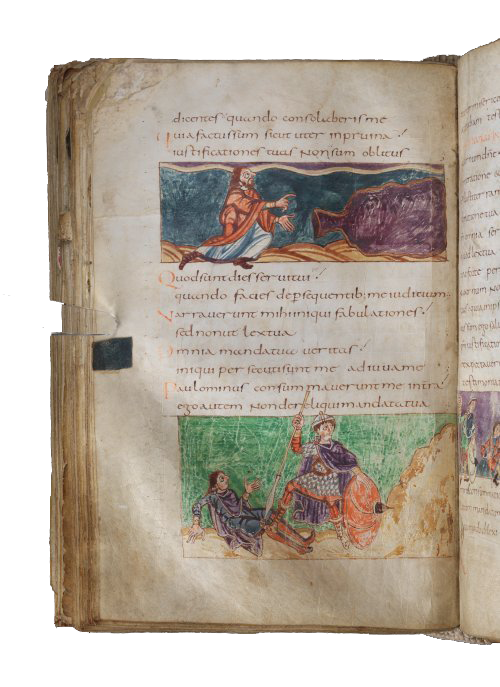 dicentes quando consolaberis me
Quia factussum sicut uter inpruina
iustificationes tuas Nonsum oblitus
Quodsunt dies serui tui
quando facies depsequentib; me iudicium
Narrauerunt mihi iniqui fabulationes
sed non ut lex tua
Omnia mandata tua ueritas
iniqui persecuti sunt me adiuua me
Paulominus consummauerunt me intra
ego autem Non dereliqui mandata tua